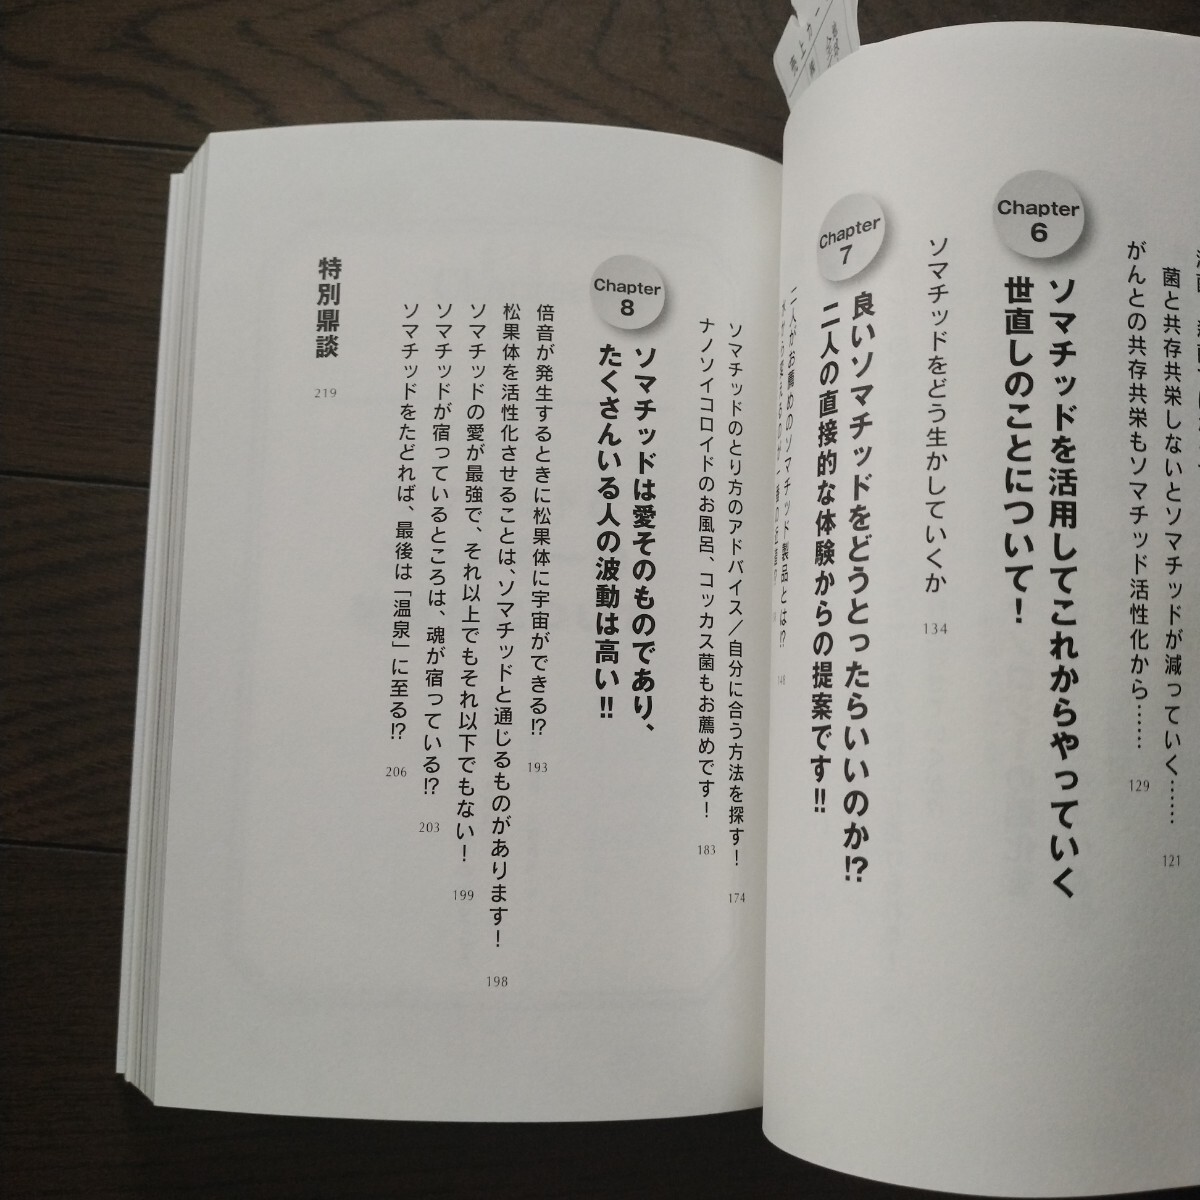 菌と共存共栄しないとソマチッドが減っていく…… 121
がんとの共存共栄もソマチッド活性化から…… 129
Chapter 6
ソマチッドを活用してこれからやっていく
世直しのことについて！
ソマチッドをどう生かしていくか 134
Chapter 7
良いソマチッドをどうとったらいいのか!?
二人の直接的な体験からの提案です!!
二人がお薦めのソマチッド製品とは!? 148
ソマチッドのとり方のアドバイス／自分に合う方法を探す！ 174
ナノソイコロイドのお風呂、コッカス菌もお薦めです！ 183
Chapter 8
ソマチッドは愛そのものであり、
たくさんいる人の波動は高い!!
倍音が発生するときに松果体に宇宙ができる!? 193
松果体を活性化させることは、ソマチッドと通じるものがあります！ 198
ソマチッドの愛が最強で、それ以上でもそれ以下でもない！ 199
ソマチッドが宿っているところは、魂が宿っている!? 203
ソマチッドをたどれば、最後は「温泉」に至る!? 206
特別鼎談 219